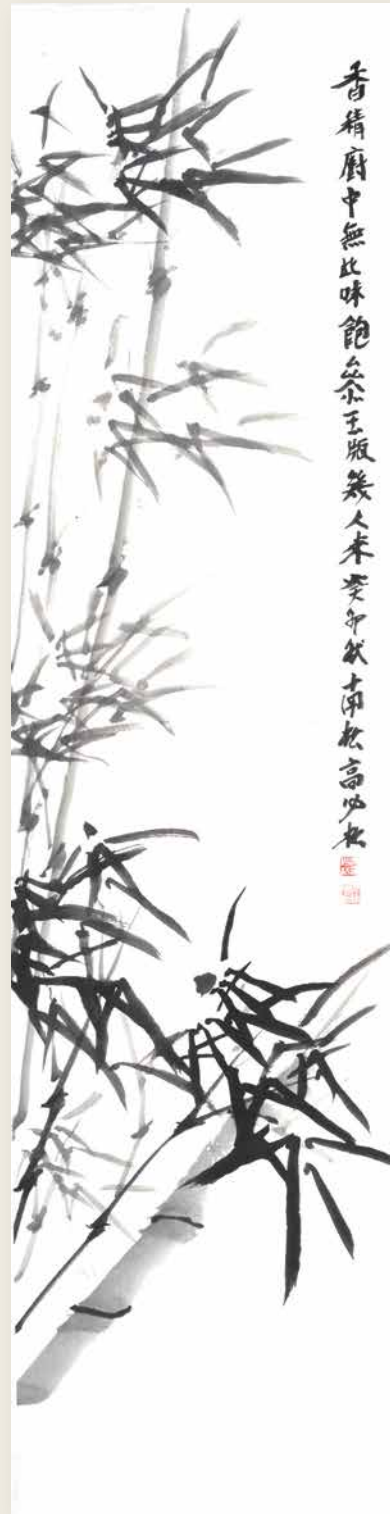 香積廚中無此味飽參玉版幾人來癸卯秋南松高少松